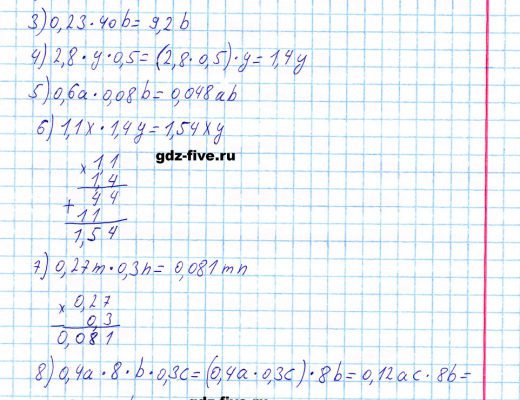 3) 0,23 · 40b = 9,2b
4) 2,8 · y · 0,5 = (2,8 · 0,5) · y = 1,4y
5) 0,6a · 0,08b = 0,048ab
6) 1,1x · 1,4y = 1,54xy
gdz-five.ru
× 1,1
1,4
44
+
11
1,54
7) 0,27m · 0,3n = 0,081mn
× 0,27
0,3
0,081
8) 0,4a · 8 · b · 0,3c = (0,4a · 0,3c) · 8b = 0,12ac · 8b =
gdz-five.ru